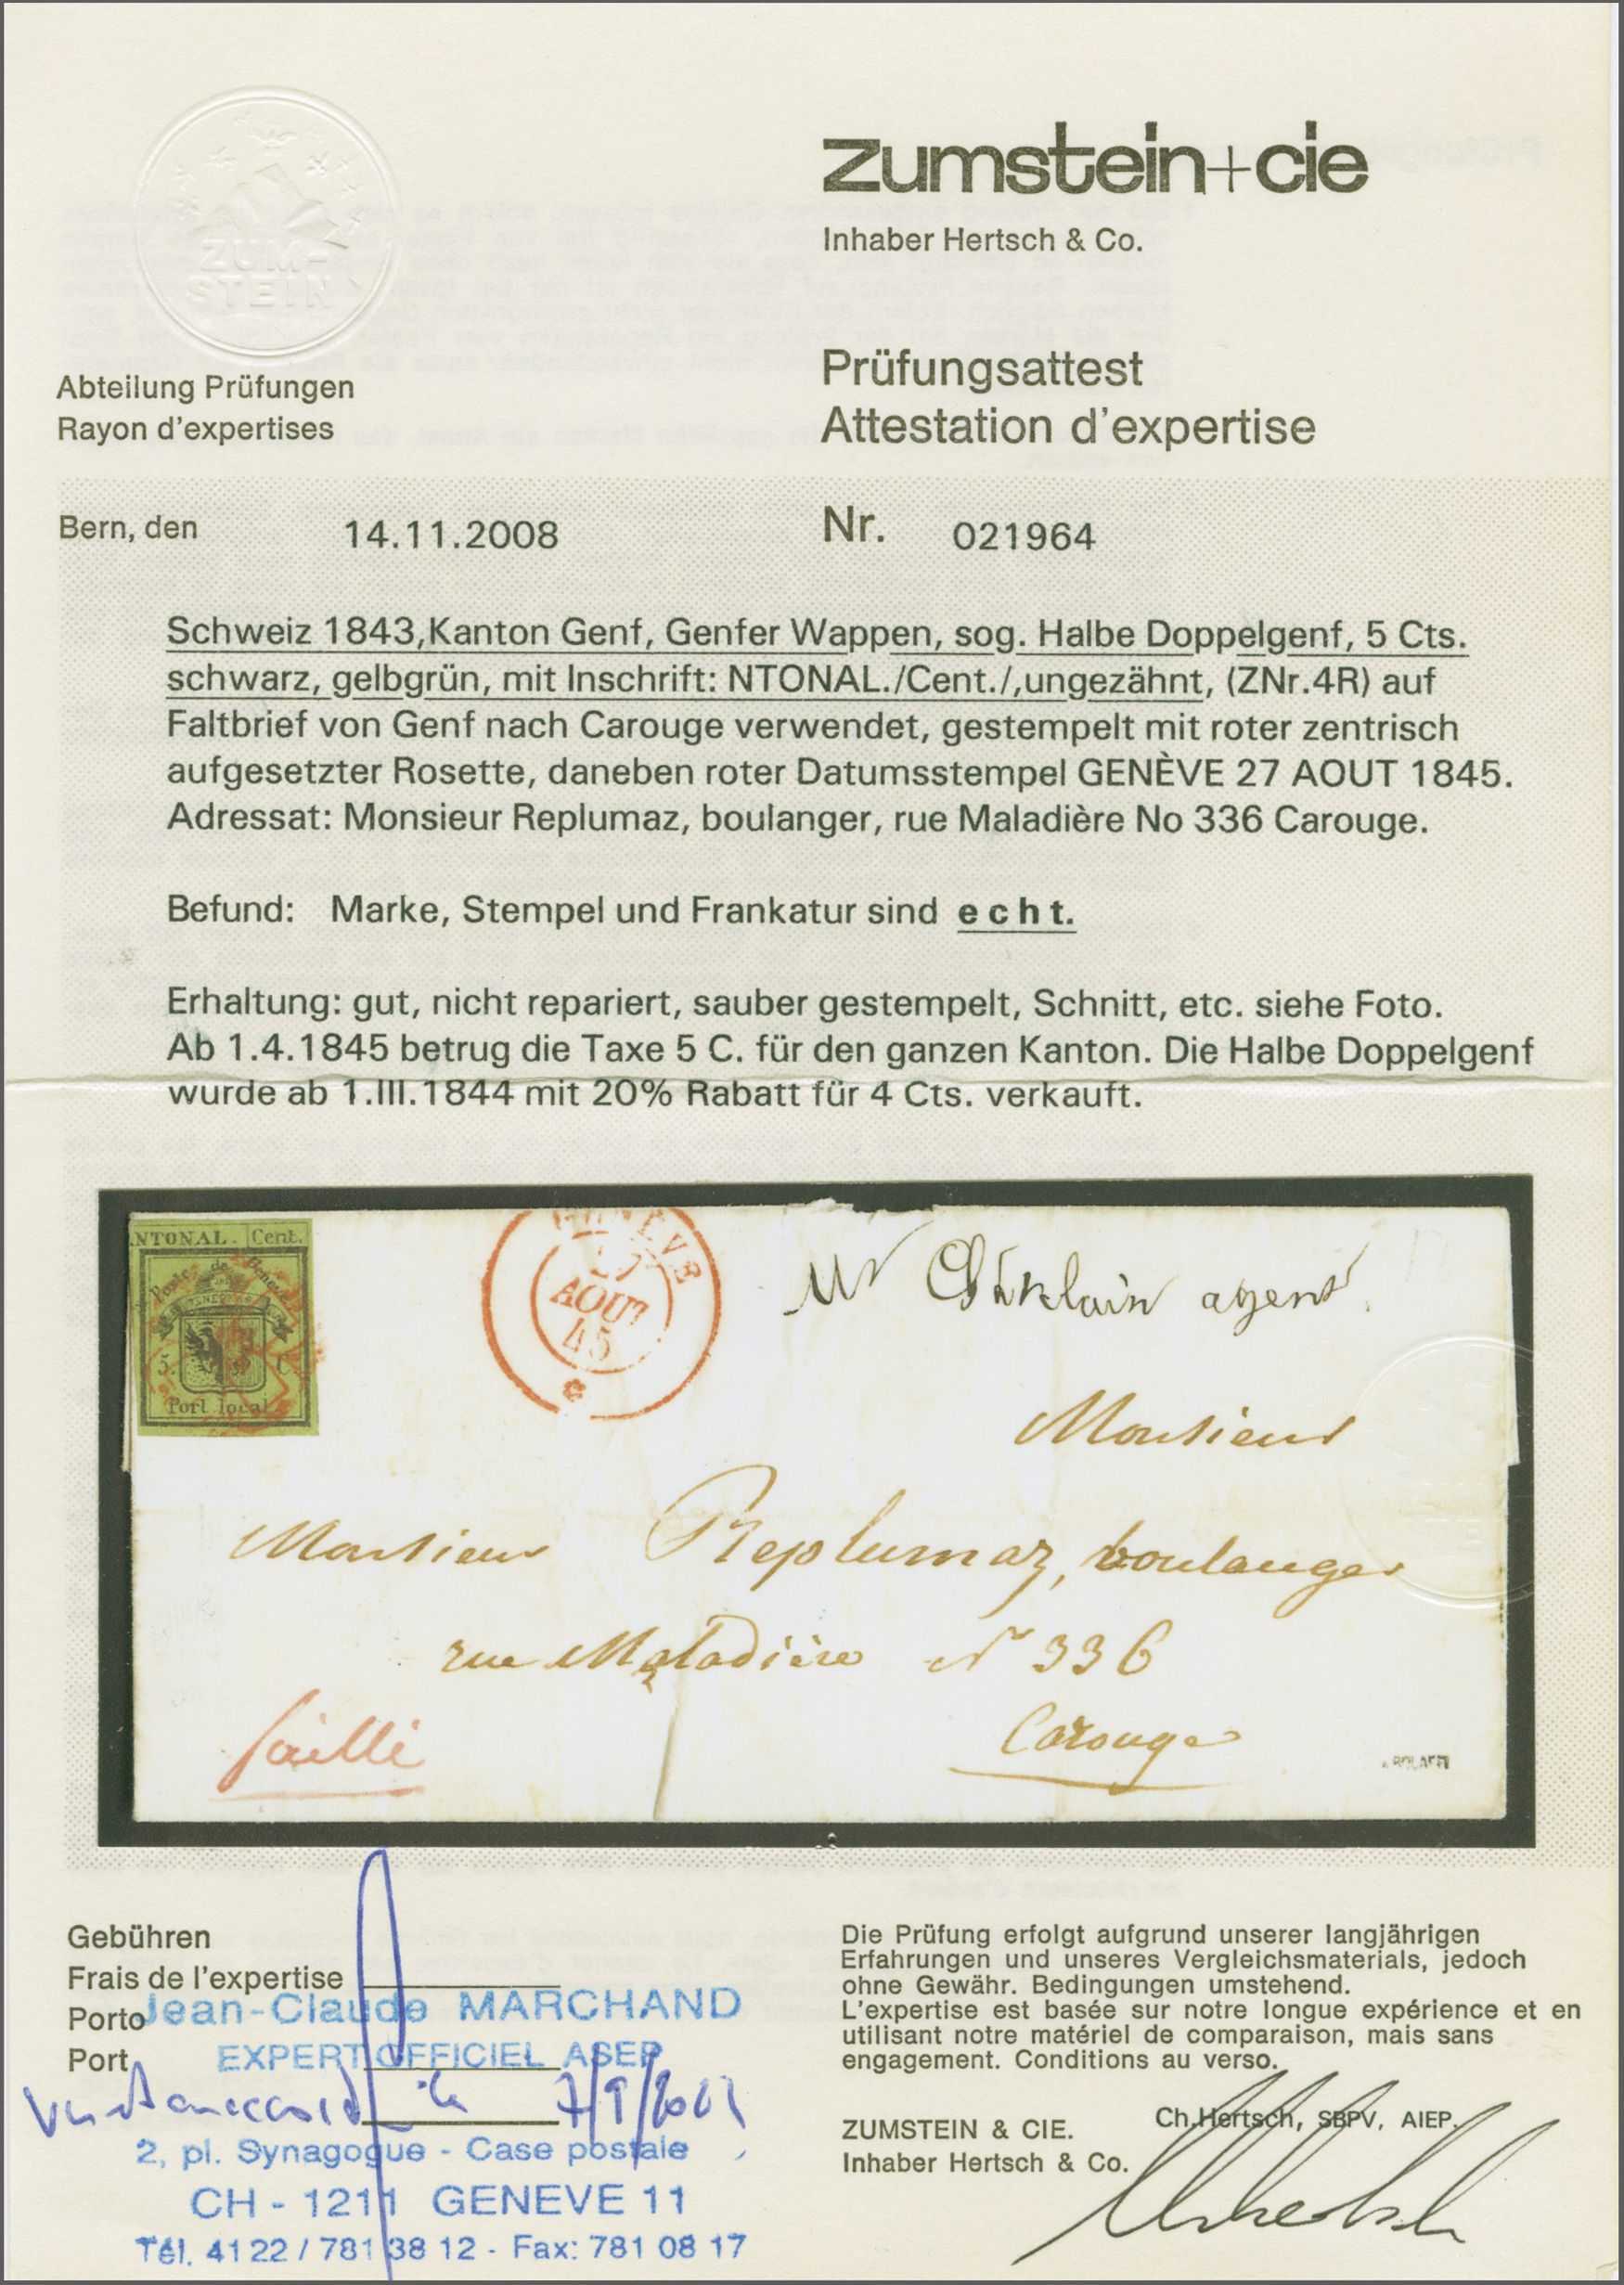 ZUM-
STEIN
zumstein+cie
Inhaber Hertsch & Co.
Abteilung Prüfungen
Rayon d'expertises
Prüfungsattest
Attestation d'expertise
Bern, den 14.11.2008 Nr. 021964
Schweiz 1843,Kanton Genf, Genfer Wappen, sog. Halbe Doppelgenf, 5 Cts.
schwarz, gelbgrün, mit Inschrift: NTONAL./Cent./,ungezähnt, (ZNr.4R) auf
Faltbrief von Genf nach Carouge verwendet, gestempelt mit roter zentrisch
aufgesetzter Rosette, daneben roter Datumsstempel GENÈVE 27 AOUT 1845.
Adressat: Monsieur Replumaz, boulanger, rue Maladière No 336 Carouge.
Befund: Marke, Stempel und Frankatur sind echt.
Erhaltung: gut, nicht repariert, sauber gestempelt, Schnitt, etc. siehe Foto.
Ab 1.4.1845 betrug die Taxe 5 C. für den ganzen Kanton. Die Halbe Doppelgenf
wurde ab 1.III.1844 mit 20% Rabatt für 4 Cts. verkauft.
NTONAL. Cent.
Poste de Genève
5 C
Port local
GENÈVE
27
AOUT
45
Mr agent
Monsieur
Monsieur Replumaz, boulanger
rue Maladière No 336
Carouge
failli
Gebühren
Frais de l'expertise
Porto
Port
Jean-Claude MARCHAND
EXPERT OFFICIEL ASEP
2, pl. Synagogue - Case postale
CH - 1211 GENEVE 11
Tél. 41 22 / 781 38 12 - Fax: 781 08 17
Die Prüfung erfolgt aufgrund unserer langjährigen
Erfahrungen und unseres Vergleichsmaterials, jedoch
ohne Gewähr. Bedingungen umstehend.
L'expertise est basée sur notre longue expérience et en
utilisant notre matériel de comparaison, mais sans
engagement. Conditions au verso.
ZUMSTEIN & CIE. Ch.Hertsch, SBPV, AIEP.
Inhaber Hertsch & Co.